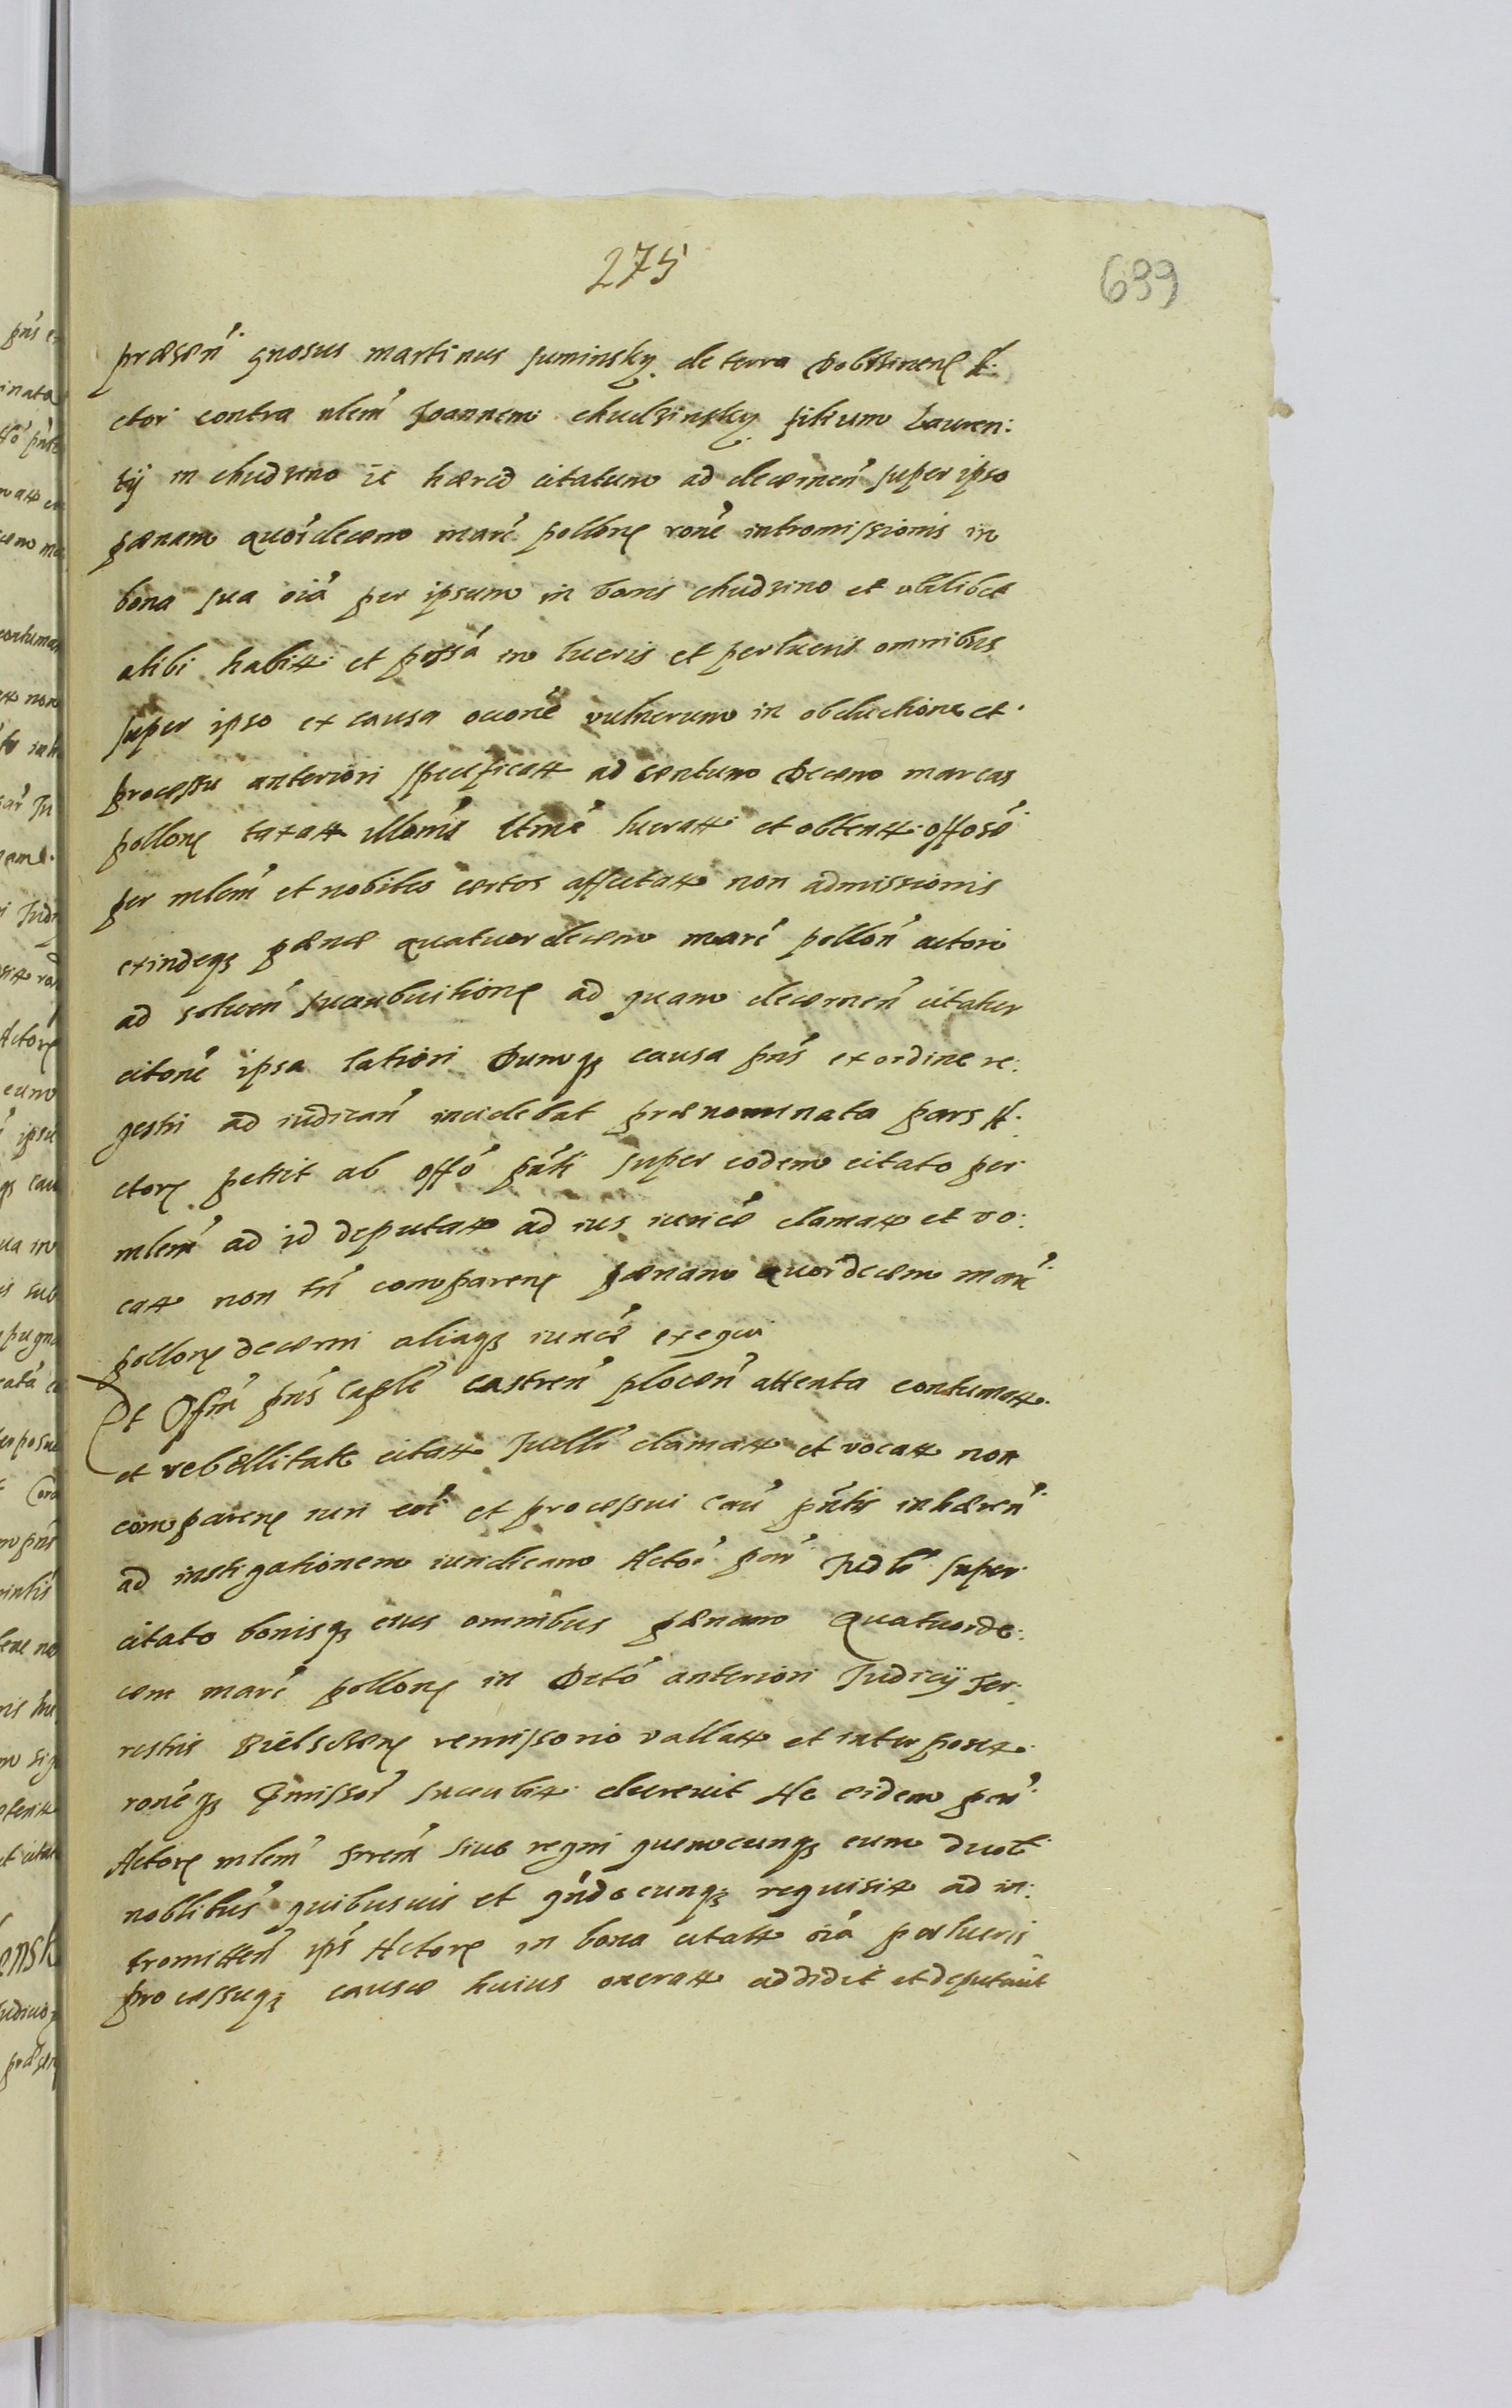 275
699
præsen' gnosus martinus suminsky de terra Dobrzinens A:
ctor contra nlem' Joannem chudzinsky filium Lauren:
tij in chudzino ic hæred citatum ad decernen' super ipso
pænam quor'decem marc' pollons rone' intromissionis in
bona sua oia' per ipsum in bonis chudzino et ubilibet
alibi habitt et possa' in lucris et perlucris omnibus
super ipso ex causa vulnerum in obductione et
processu anteriori specificatt ad centum decem marcas
pollons taxatt lucratt et obtentt offose'
per mlem' et nobiles certos affectatt non admissionis
exindeq pænæ quatuordecem marc' pollon' actori
ad solven' succubuitions ad quam decernen' citatur
citone' ipsa latiori Dumq causa pns' ex ordine re:
gestri ad iudican' incidebat prænominata pars A:
ctors petiit ab offo' pnti super eodem citato per
mlem' ad id deputatt ad ius iurice' clamatt et vo:
catt non tn' comparens pænam quor'decem marc'
pollons decerni aliaq iurice' exequi
Et Offm' pns' Caple' castren' plocen' attenta contumatt
et rebellitate citatt Juelli' clamatt et vocatt non
comparens iuri coi' et processui caus' pntis inhæren'
ad instigationem iuridicam Actor' pon' Judli' super
citato bonisq eius omnibus pænam Quatuorde:
cem marc' pollons in Dcto' anteriori Judicij Ter:
restris Bielscens remissorio vallatt et interpositt
rone'q succubitt decrevit Ac eidem pon'
Actors mlem' srem' sive regni quemcunq cum duob'
noblibus' quibusvis et qn'docunq requisitt ad in:
tromitten' ips' Actors in bona citatt oia' perlucris
processuq causæ huius oneratt addidit et deputavit